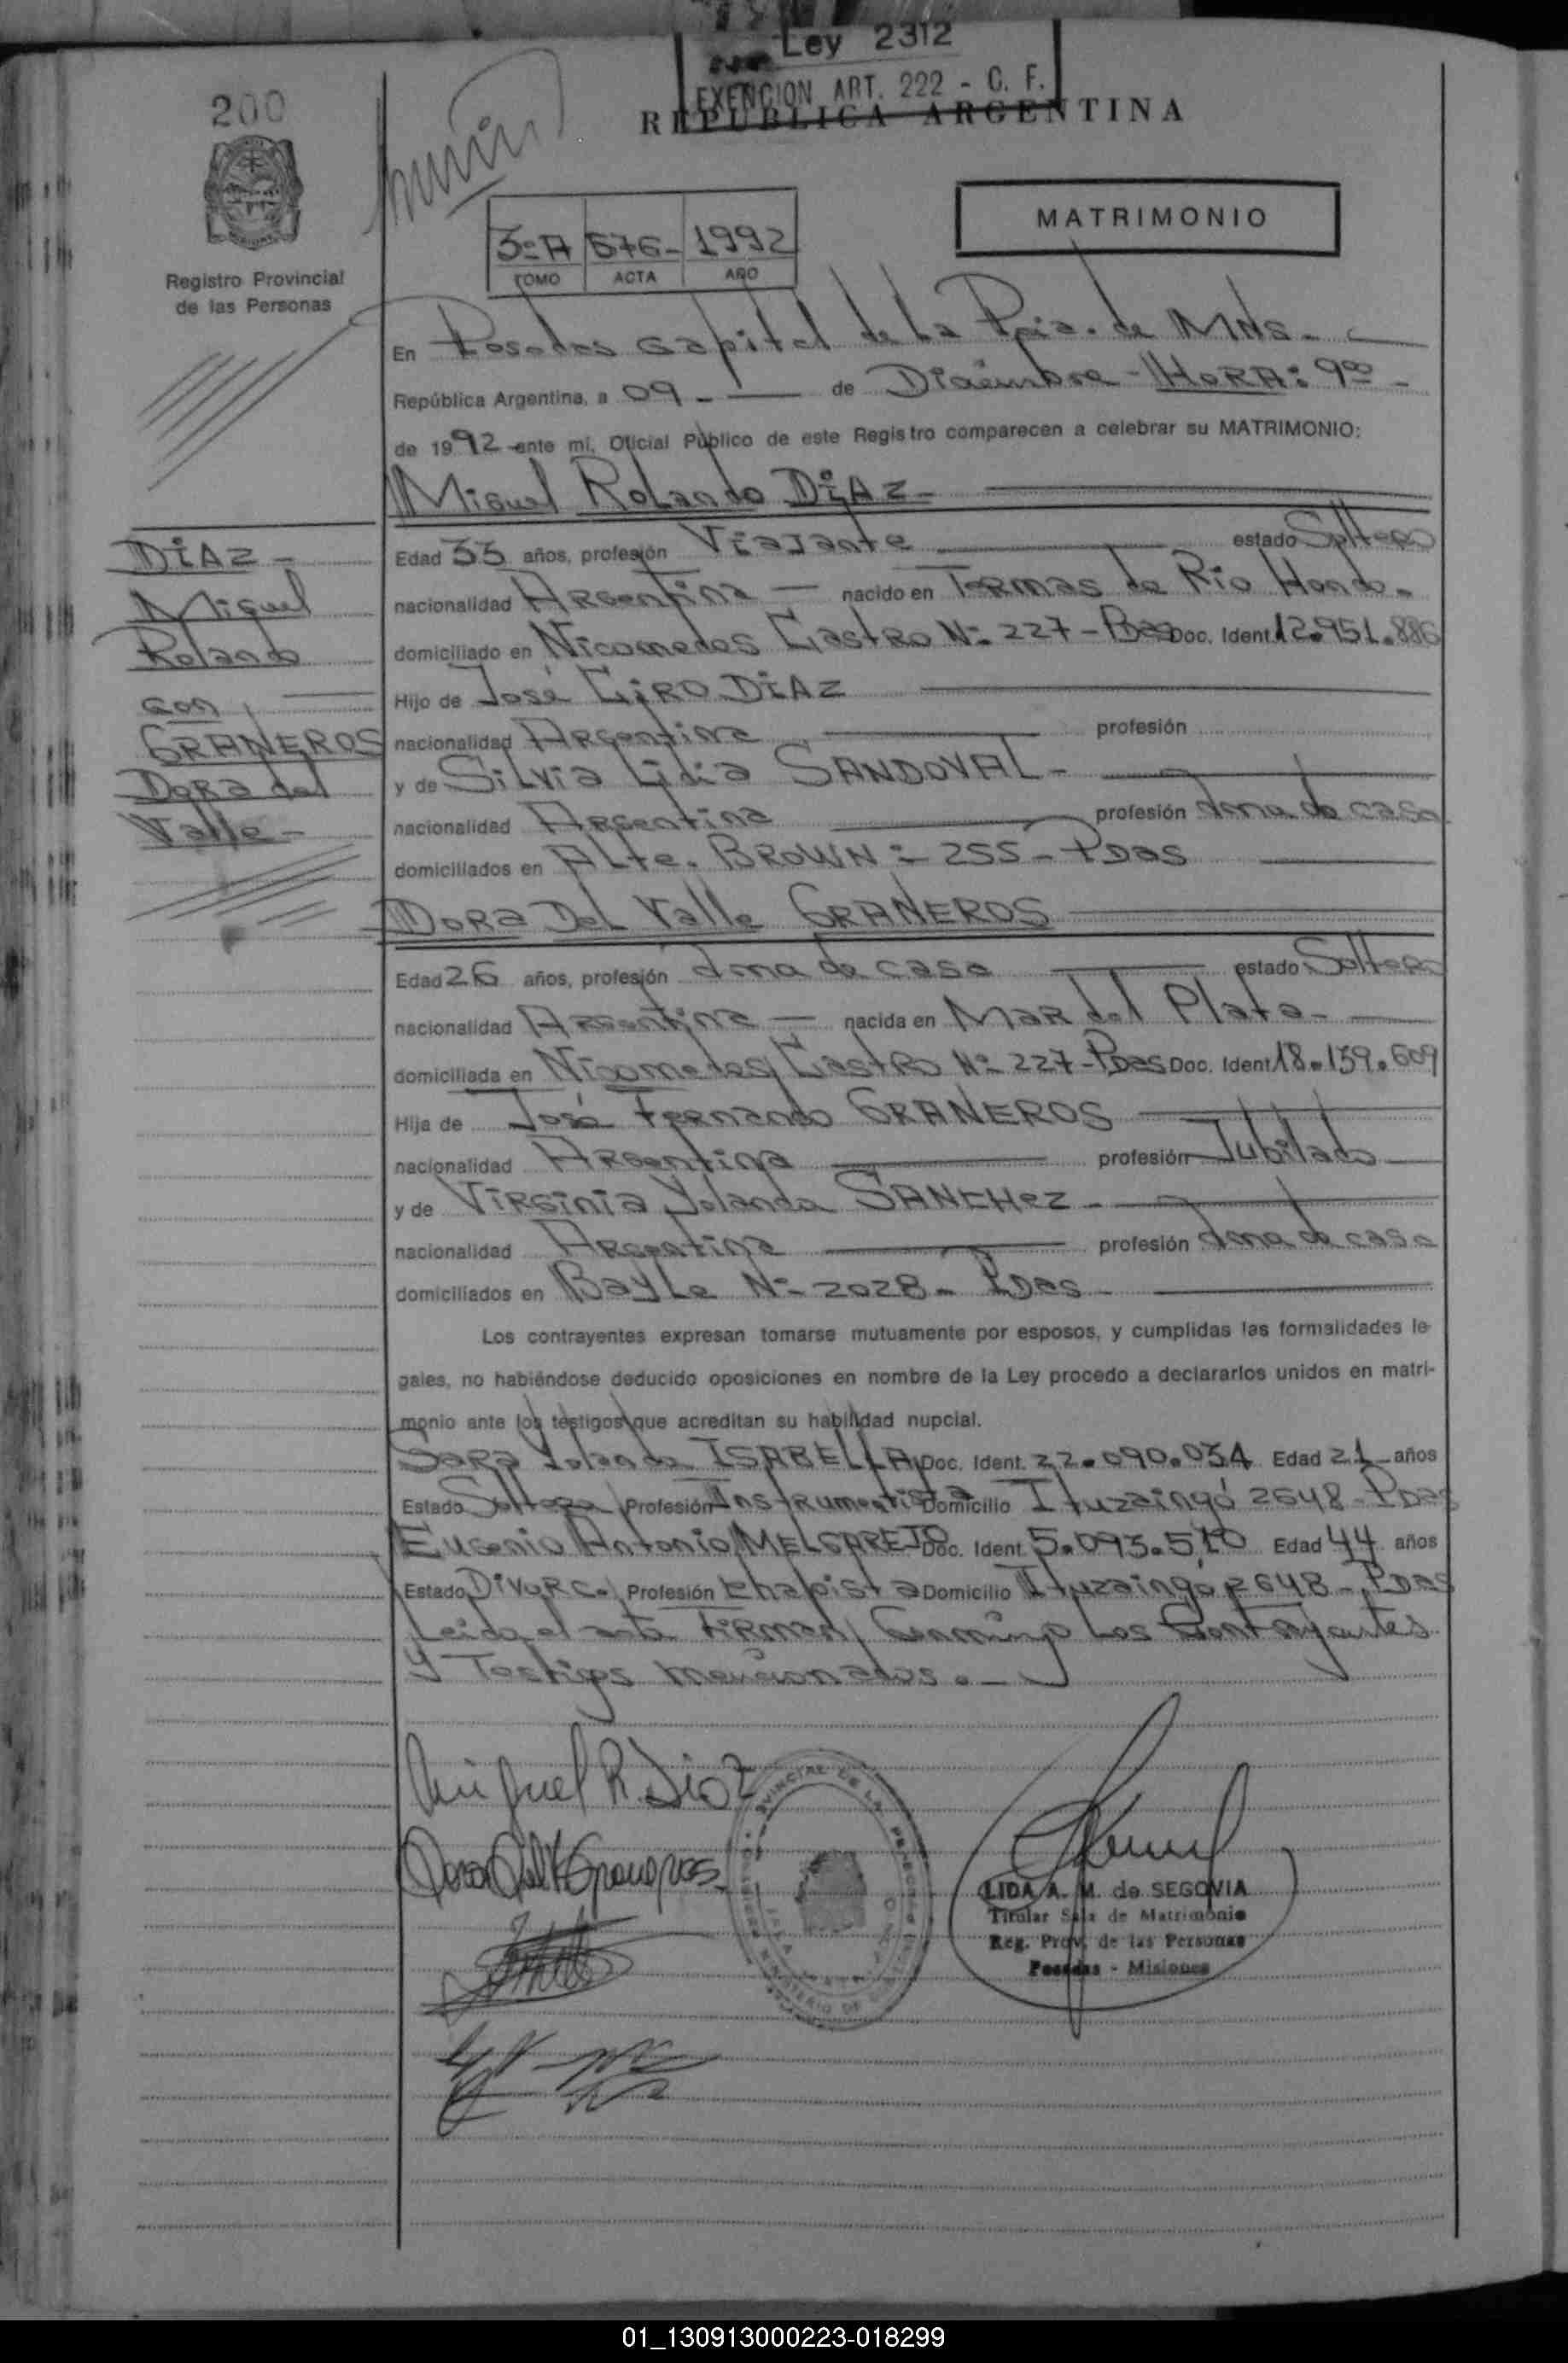 Ley 2312
EXENCION ART. 222 - C. F.
REPUBLICA ARGENTINA
200
Registro Provincial
de las Personas
MATRIMONIO
3º A 576- 1992
TOMO ACTA AÑO
En Posadas Capital de La Pcia. de Mns.-
República Argentina, a 09 - de Diciembre - HORA: 9oo -
de 1992 ante mí, Oficial Público de este Registro comparecen a celebrar su MATRIMONIO:
Miguel Rolando DiAz -
Edad 33 años, profesión Viajante estado Soltero
nacionalidad Argentina - nacido en Termas de Rio Hondo -
domiciliado en Nicomedes Castro Nº 227 - Pdas Doc. Ident. 12.951.886
Hijo de José Ciro DiAz
nacionalidad Argentina profesión
y de Silvia Lidia SANDOVAL -
nacionalidad Argentina profesión Ama de casa
domiciliados en Alte. BROWN - 255 - Pdas
DORA Del Valle GRANEROS
Edad 26 años, profesión Ama de casa estado Soltera
nacionalidad Argentina - nacida en Mar del Plata -
domiciliada en Nicomedes Castro Nº 227 - Pdas Doc. Ident 18.139.609
Hija de José Fernando GRANEROS
nacionalidad Argentina profesión Jubilado
y de Virginia Yolanda SANCHez -
nacionalidad Argentina profesión Ama de casa
domiciliados en Bayle Nº 2028 - Pdas -
Los contrayentes expresan tomarse mutuamente por esposos, y cumplidas las formalidades le-
gales, no habiéndose deducido oposiciones en nombre de la Ley procedo a declararlos unidos en matri-
monio ante los testigos que acreditan su habilidad nupcial.
Sara Yolanda ISABELLA Doc. Ident. 22.090.034 Edad 21 años
Estado Soltera Profesión Instrumentista Domicilio Ituzaingó 2648 - Pdas
Eugenio Antonio MELGAREJO Doc. Ident. 5.093.510 Edad 44 años
Estado Divorc. Profesión Chapista Domicilio Ituzaingó 2648 - Pdas
Leida el acta Firman Conmigo Los Contrayentes
y Testigos mencionados. -
DiAz -
Miguel
Rolando
con
GRANEROS
Dora del
Valle -
Miguel R. Diaz
Dora del V Graneros
LIDA A. M. de SEGOVIA
Titular Sala de Matrimonio
Reg. Prov. de las Personas
Posadas - Misiones
01_130913000223-018299